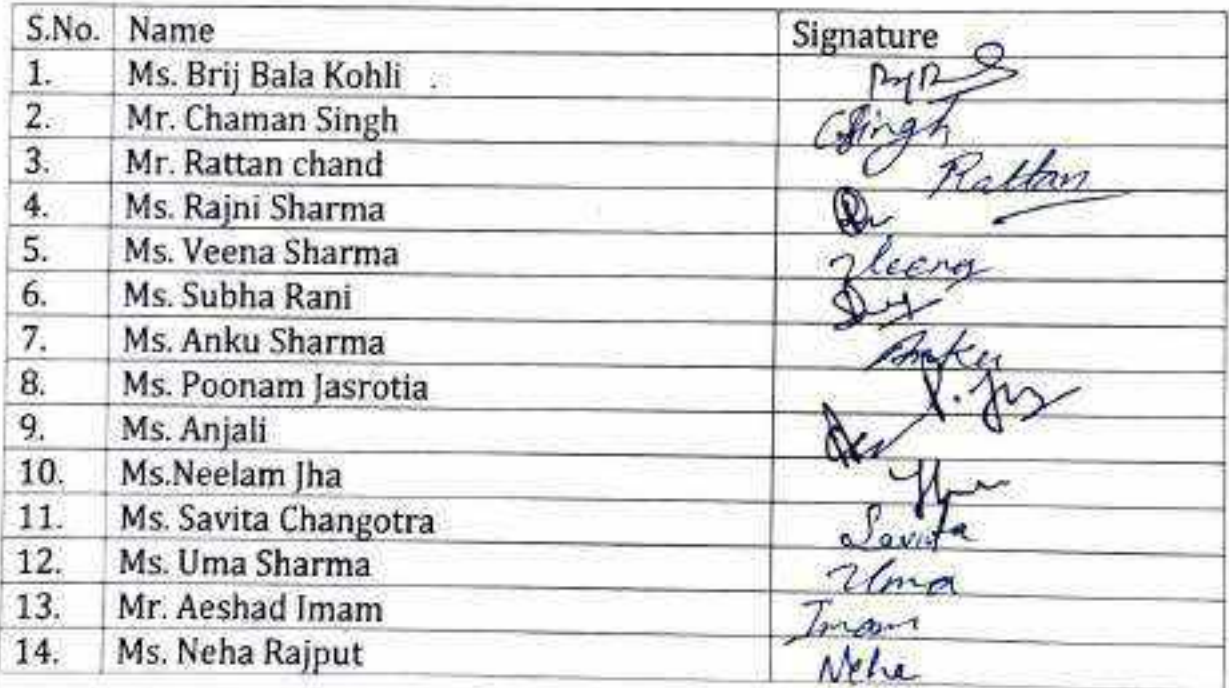 S.No. Name Signature
1. Ms. Brij Bala Kohli
2. Mr. Chaman Singh CSingh
3. Mr. Rattan chand Rattan
4. Ms. Rajni Sharma
5. Ms. Veena Sharma Veena
6. Ms. Subha Rani
7. Ms. Anku Sharma Anku
8. Ms. Poonam Jasrotia
9. Ms. Anjali
10. Ms.Neelam Jha
11. Ms. Savita Changotra Savita
12. Ms. Uma Sharma Uma
13. Mr. Aeshad Imam Imam
14. Ms. Neha Rajput Neha